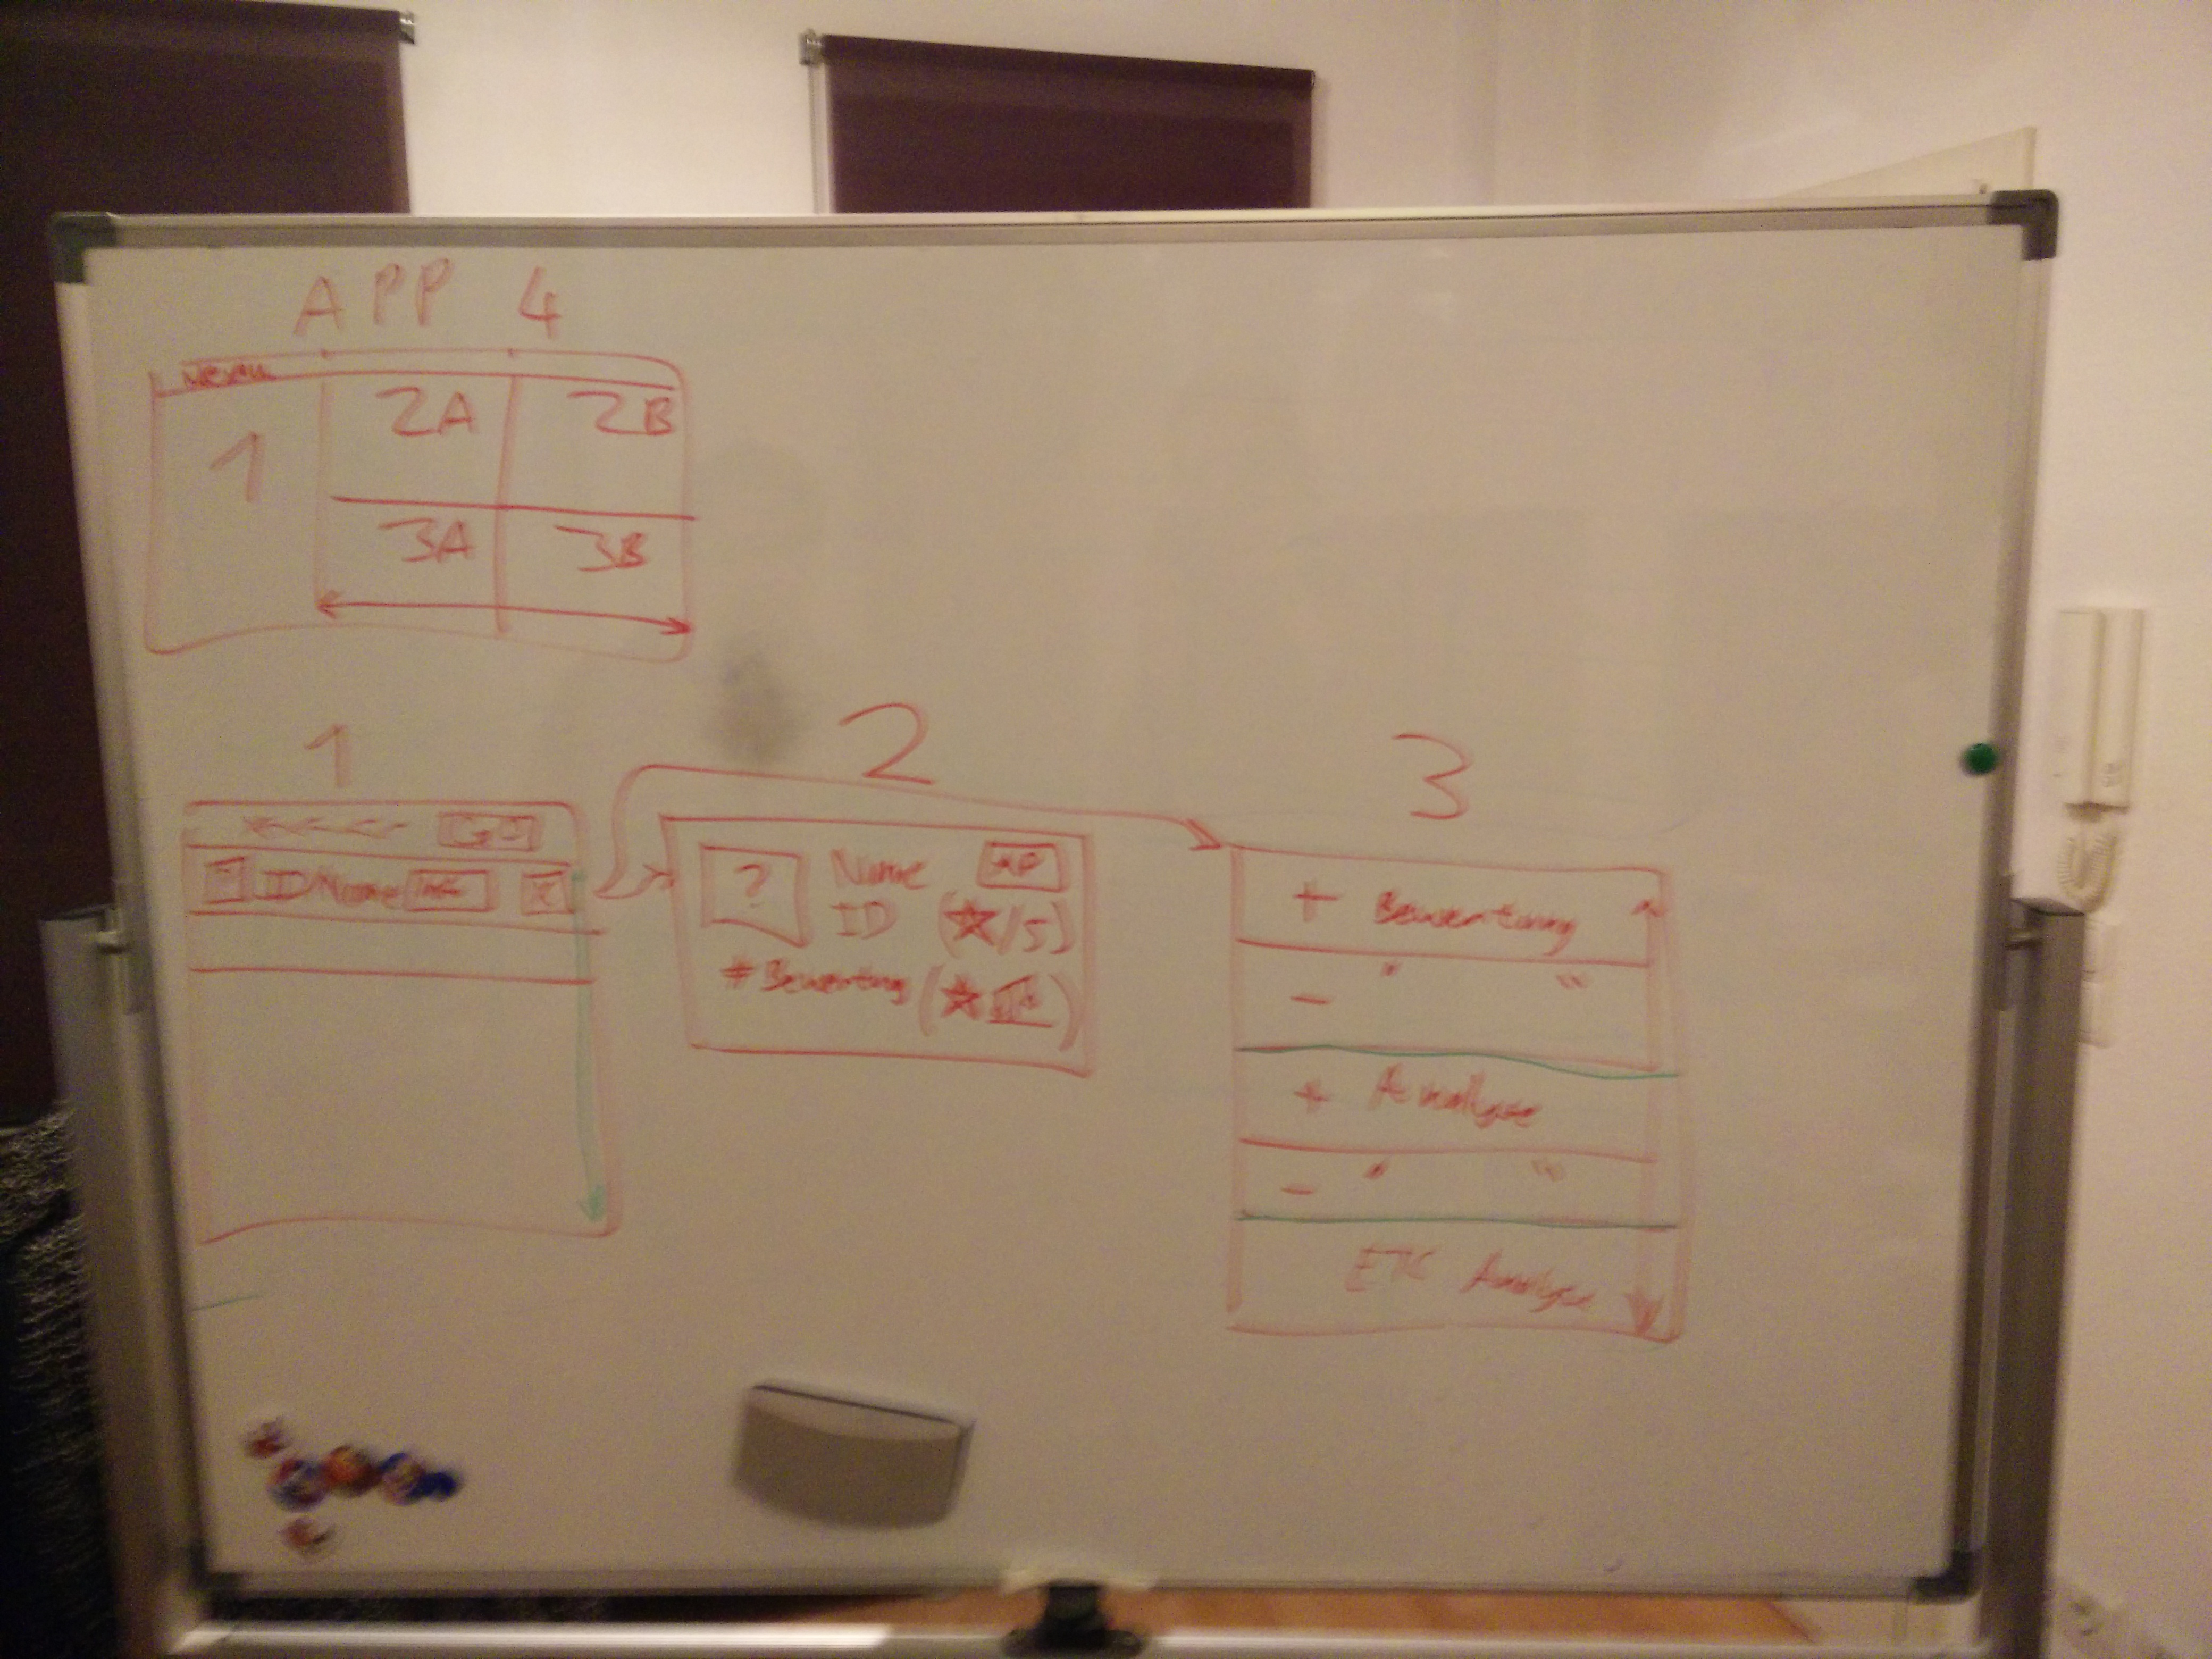 APP 4
Menu
1 2A 2B
3A 3B
1 2 3
ID Name
?
Name
ID (★/5)
# Bewertung (★
+ Bewertung
- " "
+ Analyse
- " "
ETC Analyse